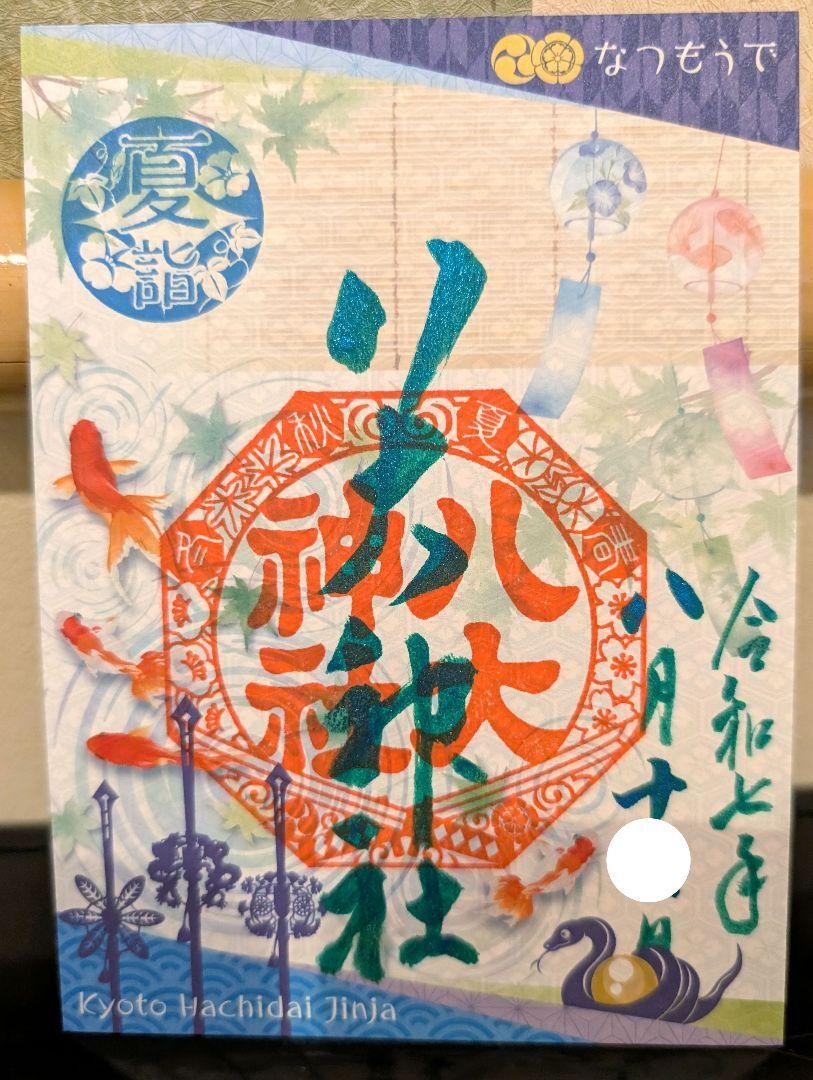 なつもうで
夏詣
春
夏
秋
八大
神社
八大神社
令和七年
八月十
日
Kyoto Hachidai Jinja